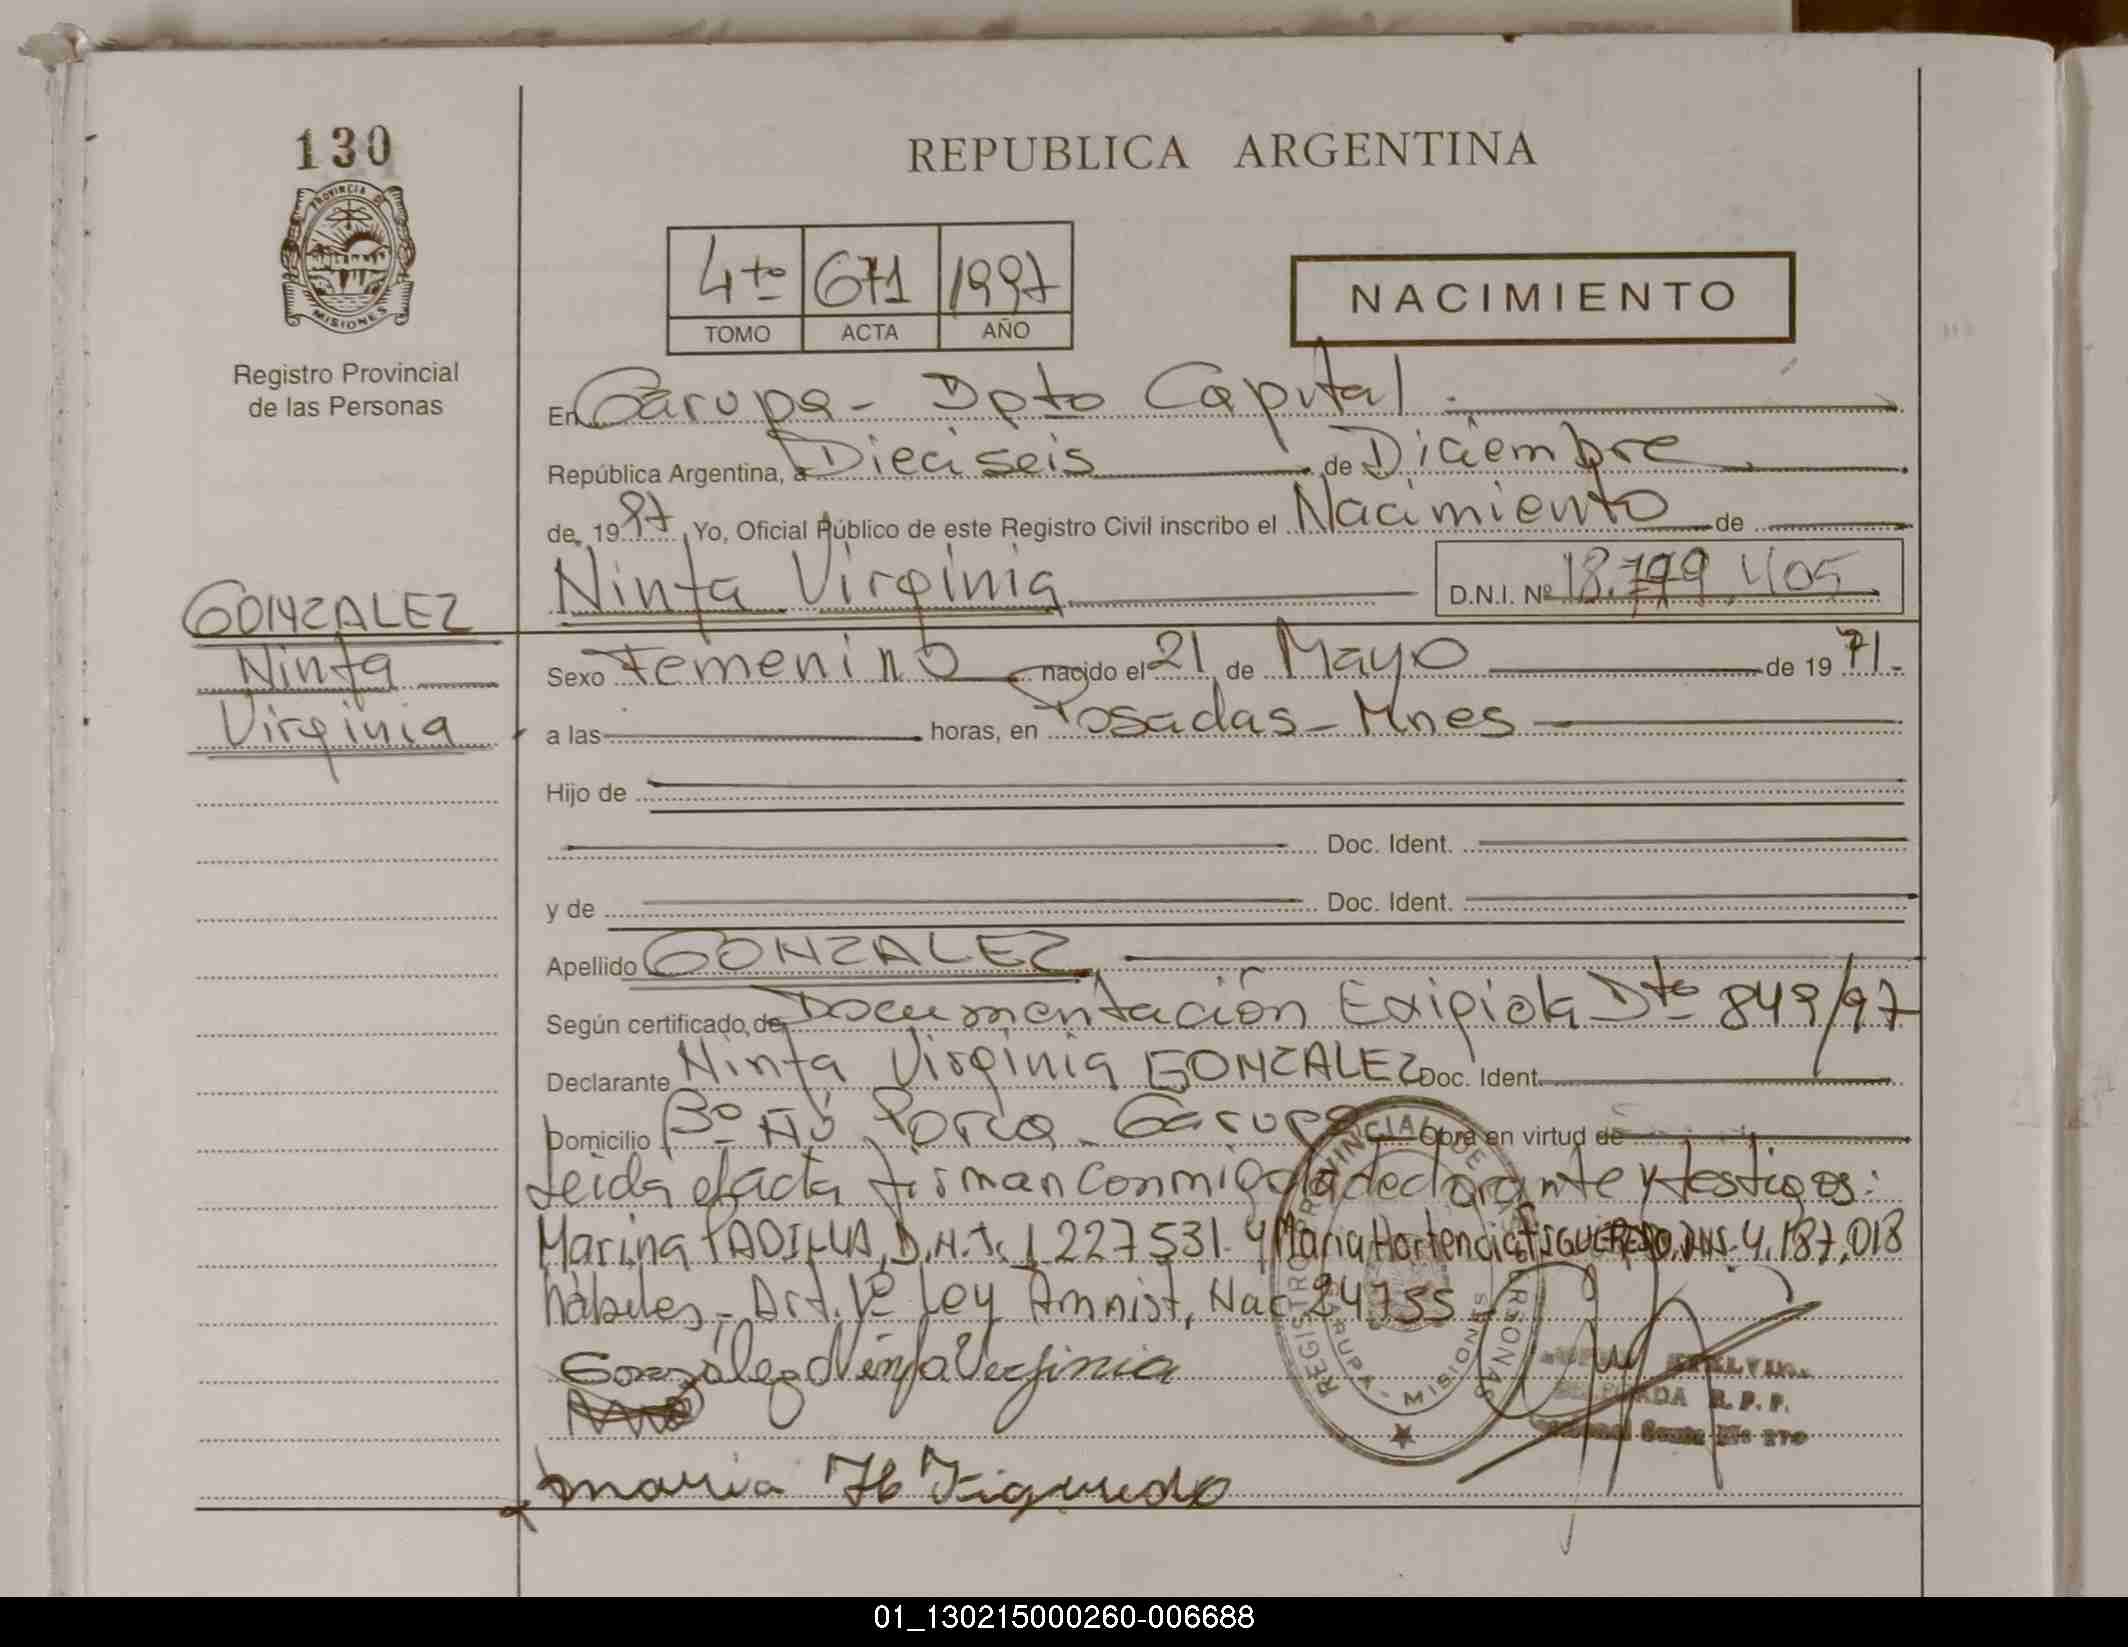 130
PROVINCIA DE
MISIONES
Registro Provincial
de las Personas
REPUBLICA ARGENTINA
4to 671 1997
TOMO ACTA AÑO
NACIMIENTO
En Garupa - Dpto Capital.
República Argentina, a Dieciseis de Diciembre
de 1997 Yo, Oficial Público de este Registro Civil inscribo el Nacimiento de
Ninfa Virginia D.N.I. Nº 18.799.405
GONZALEZ
Ninfa
Virginia
Sexo Femenino nacido el 21 de Mayo de 1971.-
a las horas, en Posadas - Mnes
Hijo de
Doc. Ident.
y de Doc. Ident.
Apellido GONZALEZ
Según certificado de Documentación Exigida Dto 849/97
Declarante Ninfa Virginia GONZALEZ Doc. Ident.
Domicilio Bº Ñú Porá - Garupá Obra en virtud de
Leida el acta firman conmigo la declarante y testigos:
Marina PADILLA, D.N.I. 1.227531. y Maria Hortencia FIGUEREDO, DNI. 4.187.018
hábiles - Art. 1º Ley Amnist, Nac 24755
González Ninfa Virginia
REGISTRO PROVINCIAL DE LAS PERSONAS
GARUPA - MISIONES
DELEGADA R.P.P.
maria H Figueredo
01_130215000260-006688